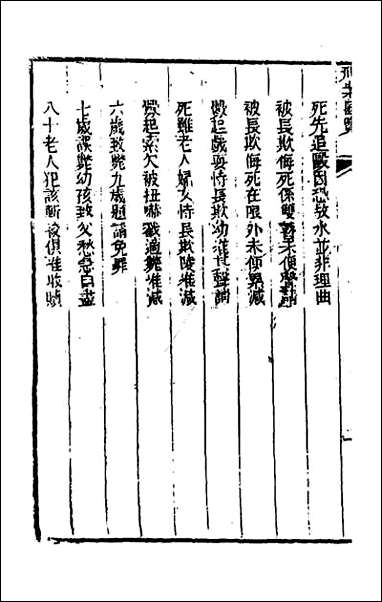 刑案匯覽
死先追毆因恐水並非理曲
被長欺侮死係雙瞽未便聲請
被長欺侮死在限外未便累減
釁起戲耍恃長欺幼准其聲請
死雖老人婦女恃長欺陵准減
釁起索欠被扭嚇戳適斃准減
六歲致斃九歲題請免罪
七歲誤斃幼孩致父愁急自盡
八十老人犯該斬絞俱准收贖